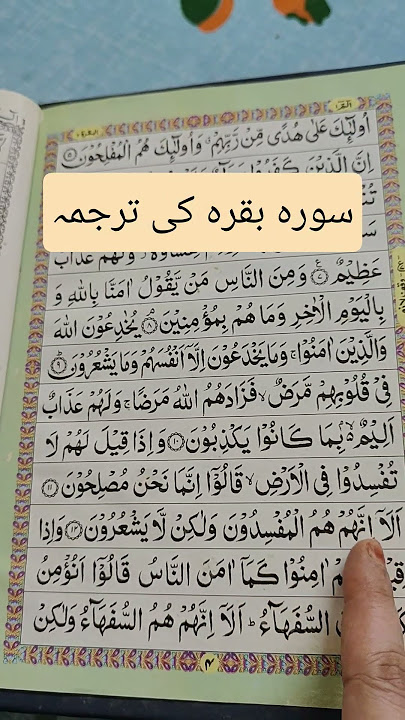 الٓمّٓ
البقرة ٢
اُولٰٓئِكَ عَلٰى هُدًى مِّنْ رَّبِّهِمْ ۗ وَاُولٰٓئِكَ هُمُ الْمُفْلِحُوْنَ ۝٥
اِنَّ الَّذِيْنَ كَفَرُوْا
سورہ بقرہ کی ترجمہ
وَّلَهُمْ عَذَابٌ
عَظِيْمٌ ۝٧ وَمِنَ النَّاسِ مَنْ يَّقُوْلُ اٰمَنَّا بِاللّٰهِ وَ
بِالْيَوْمِ الْاٰخِرِ وَمَا هُمْ بِمُؤْمِنِيْنَ ۝٨ يُخٰدِعُوْنَ اللّٰهَ
وَالَّذِيْنَ اٰمَنُوْا ۚ وَمَا يَخْدَعُوْنَ اِلَّآ اَنْفُسَهُمْ وَمَا يَشْعُرُوْنَ ۝٩
فِيْ قُلُوْبِهِمْ مَّرَضٌ ۙ فَزَادَهُمُ اللّٰهُ مَرَضًا ۚ وَلَهُمْ عَذَابٌ
اَلِيْمٌۢ ۙ بِمَا كَانُوْا يَكْذِبُوْنَ ۝١٠ وَاِذَا قِيْلَ لَهُمْ لَا
تُفْسِدُوْا فِي الْاَرْضِ ۙ قَالُوْٓا اِنَّمَا نَحْنُ مُصْلِحُوْنَ ۝١١
اَلَآ اِنَّهُمْ هُمُ الْمُفْسِدُوْنَ وَلٰكِنْ لَّا يَشْعُرُوْنَ ۝١٢ وَاِذَا
اٰمِنُوْا كَمَآ اٰمَنَ النَّاسُ قَالُوْٓا اَنُؤْمِنُ
السُّفَهَآءُ ؕ اَلَآ اِنَّهُمْ هُمُ السُّفَهَآءُ وَلٰكِنْ
٤